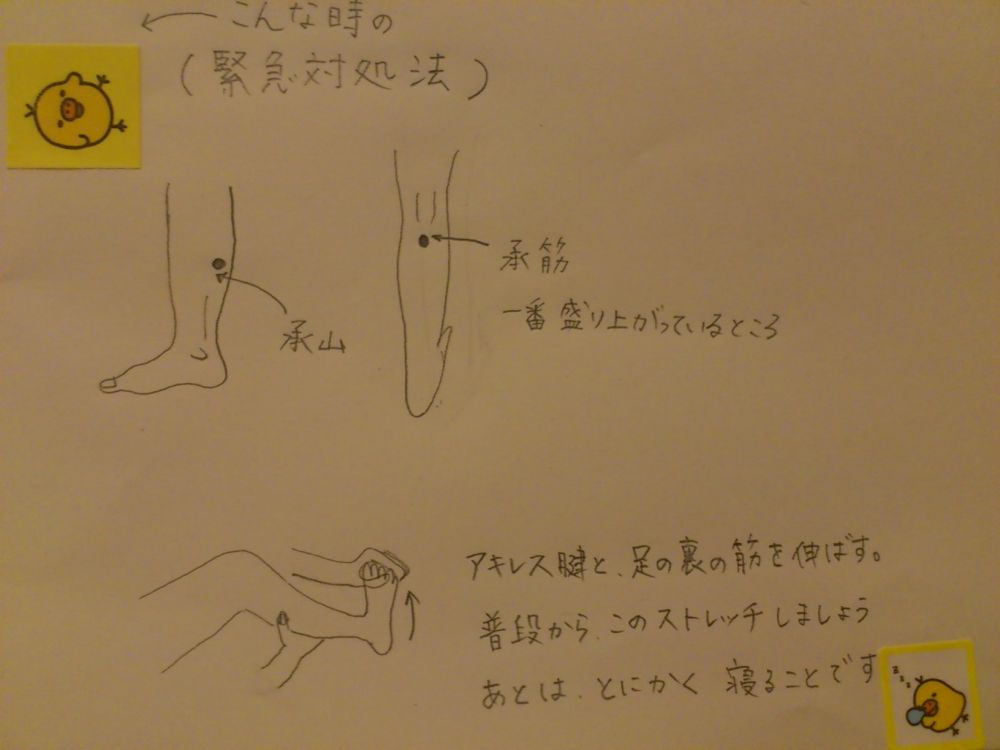 こんな時の
(緊急対処法)
承筋
一番盛り上がっているところ
承山
アキレス腱と、足の裏の筋を伸ばす。
普段から、このストレッチしましょう
あとは、とにかく寝ることです
zzzz